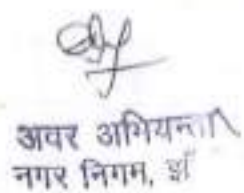 अवर अभियन्ता
नगर निगम,